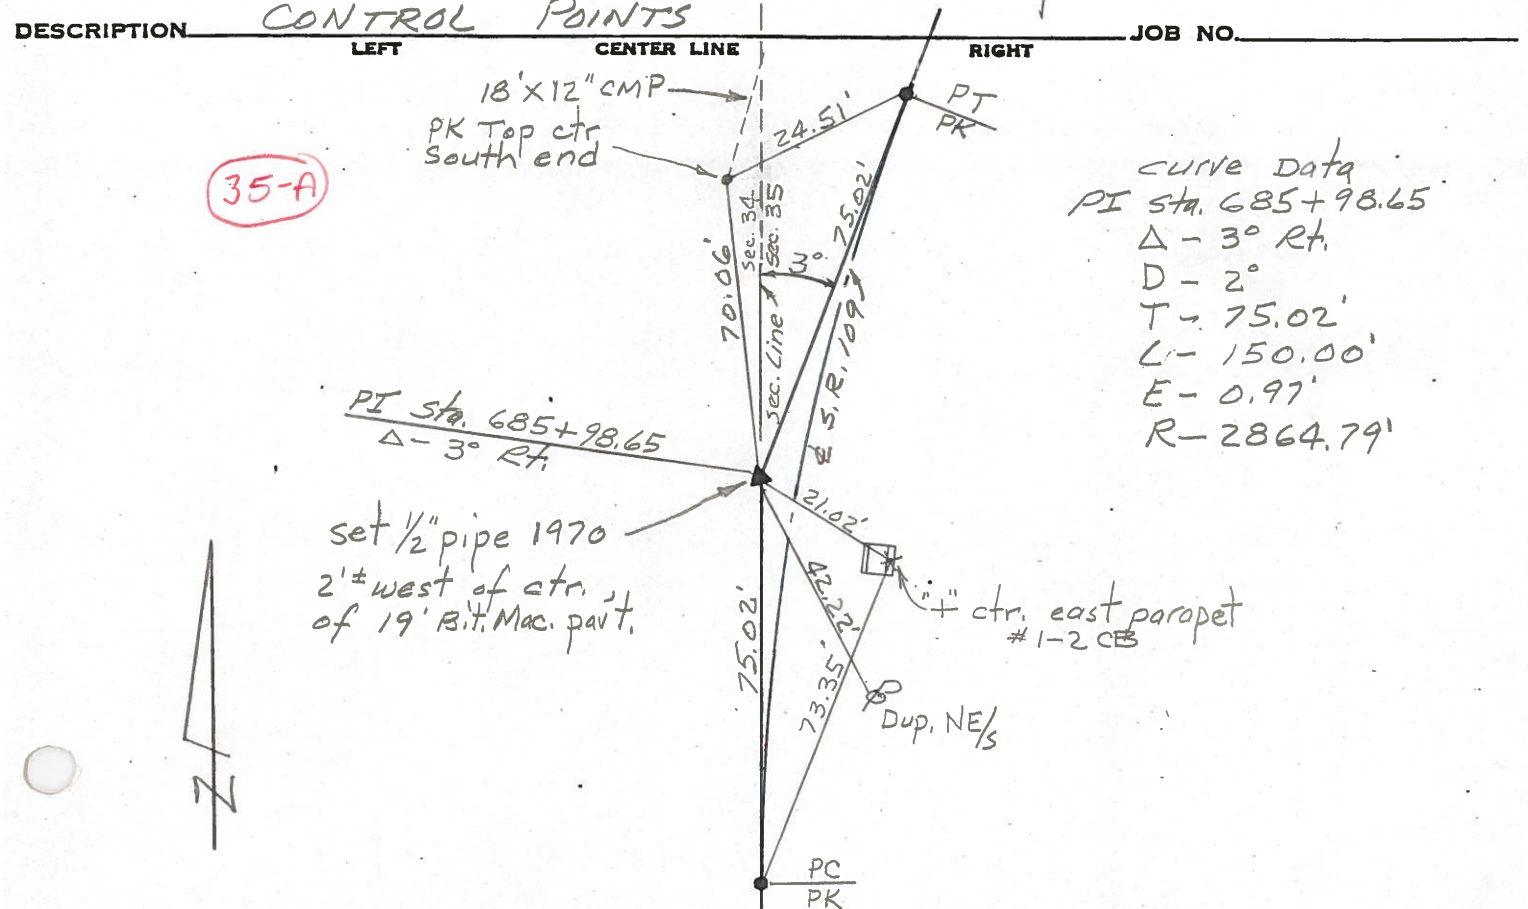 DESCRIPTION CONTROL POINTS
JOB NO.
LEFT
CENTER LINE
RIGHT
18'X12" CMP
PK Top ctr
South end
24.51'
PT
PK
35-A
Curve Data
PI sta. 685+98.65
Δ - 3° Rt.
D - 2°
T - 75.02'
L - 150.00'
E - 0.97'
R - 2864.79'
70.06'
Sec. 34
Sec. 35
Sec. Line
3°
75.02'
℄ S.R. 109
PI sta. 685+98.65
Δ - 3° Rt.
set 1/2" pipe 1970
2'± west of ctr.
of 19' Bit. Mac. pav't.
21.02'
42.22'
73.35'
75.02'
"+" ctr. east parapet
#1-2 CB
Dup. NE/S
N
PC
PK